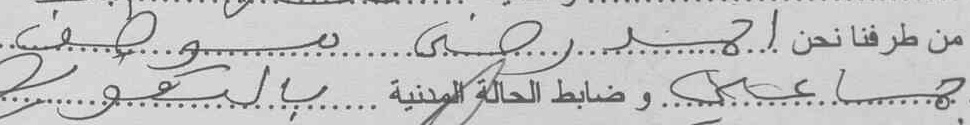 من طرفنا نحن احمد رضى موظف
جماعي و ضابط الحالة المدنية بال